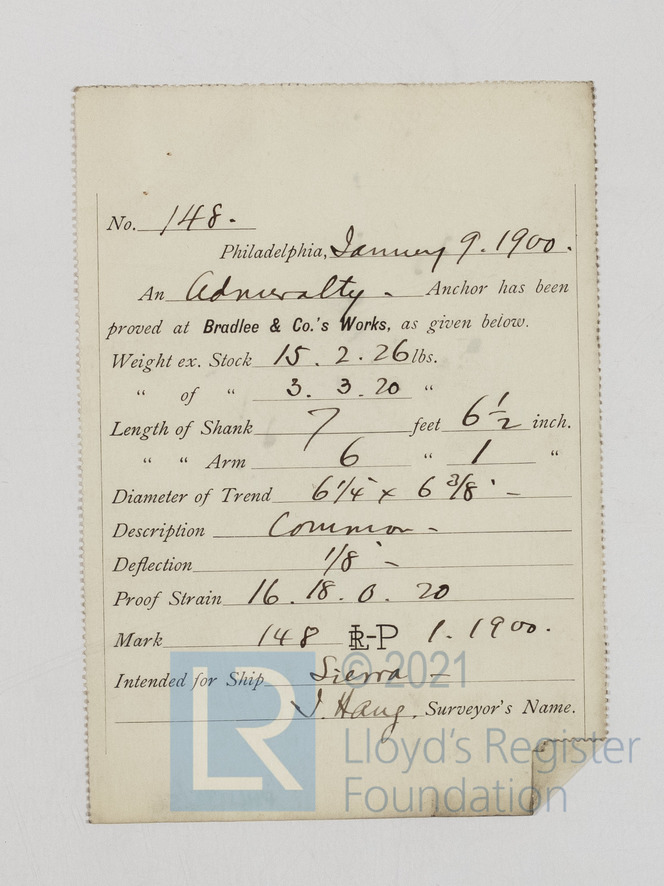 No. 148.
Philadelphia, January 9. 1900.
An Admiralty - Anchor has been
proved at Bradlee & Co.'s Works, as given below.
Weight ex. Stock 15. 2. 26 lbs.
" of " 3. 3. 20 "
Length of Shank 7 feet 6 1/2 inch.
" " Arm 6 " 1 "
Diameter of Trend 6 1/4 x 6 3/8" -
Description Common -
Deflection 1/8" -
Proof Strain 16. 18. 0. 20
Mark 148 LR-P 1. 1900.
Intended for Ship Sierra -
J. Haug. Surveyor's Name.
LR © 2021
Lloyd's Register
Foundation